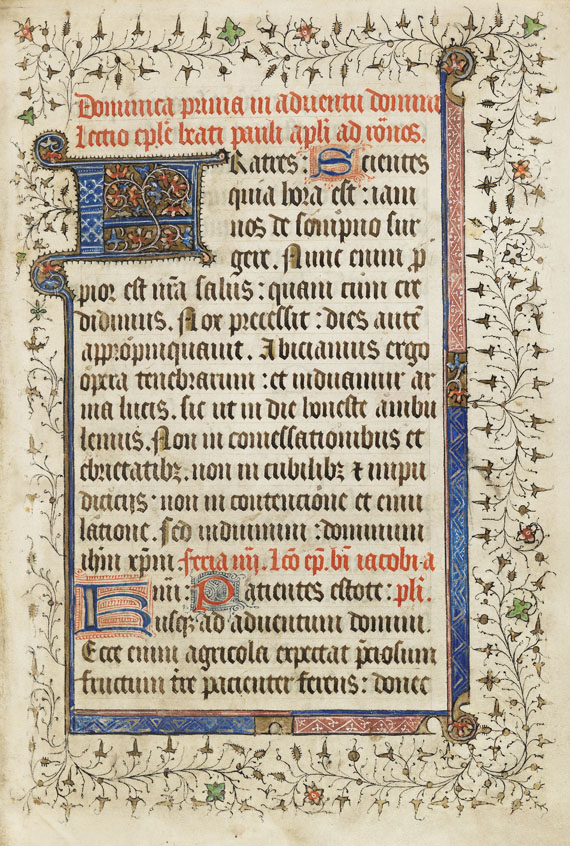 Dominica prima in aduentu domini
Lectio eplē beati pauli apl̄i ad rōnos.
FRatres: Scientes
quia hora est: iam
nos de sompno sur
gere. Nunc enim p̱
pior est nr̄a salus: quam cum cre
didimus. Nox precessit: dies autē
appropinquauit. Abiciamus ergo
opera tenebrarum: et induamur ar
ma lucis. sic ut in die honeste ambu
lemus. Non in comessationibus et
ebrietatibꝫ. non in cubilibꝫ ⁊ inpu
diciciis: non in contencione et emu
latione. Sed induimini: dominum
ihm̄ xp̄m. feria iiij. Lc̄o ep̄. bī iacobi. a
Patientes estote: pl̄i.
usqꝫ ad aduentum domini.
Ecce enim agricola expectat p̄ciosum
fructum tr̄e pacienter ferens: donec